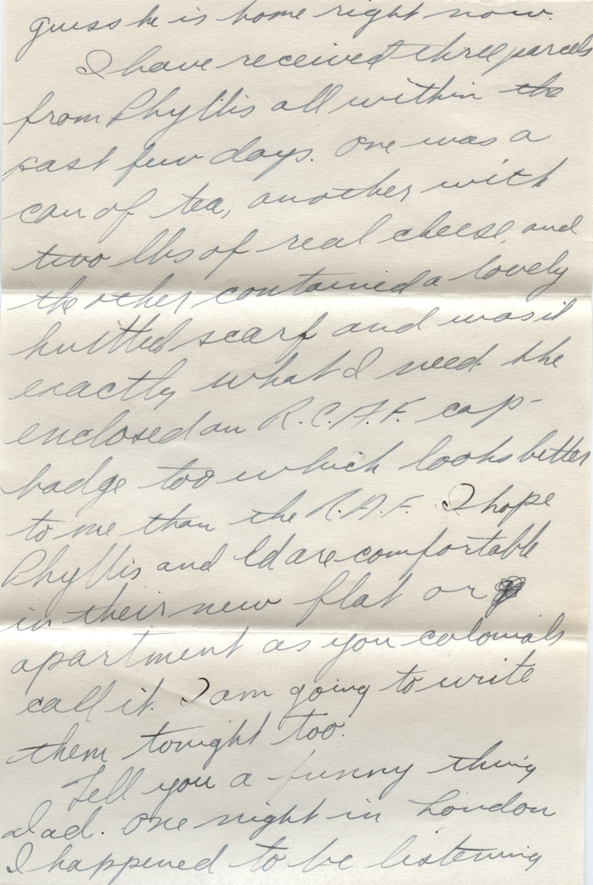 guess he is home right now.
I have received three parcels
from Phyllis all within the
past few days. One was a
can of tea, another with
two lbs of real cheese, and
the other contained a lovely
knitted scarf and was it
exactly what I need. the
enclosed an R.C.A.F. cap-
badge too which looks better
to me than the R.A.F. I hope
Phyllis and Ed are comfortable
in their new flat or
apartment as you colonials
call it. I am going to write
them tonight too.
Tell you a funny thing
Dad. One night in London
I happened to be listening